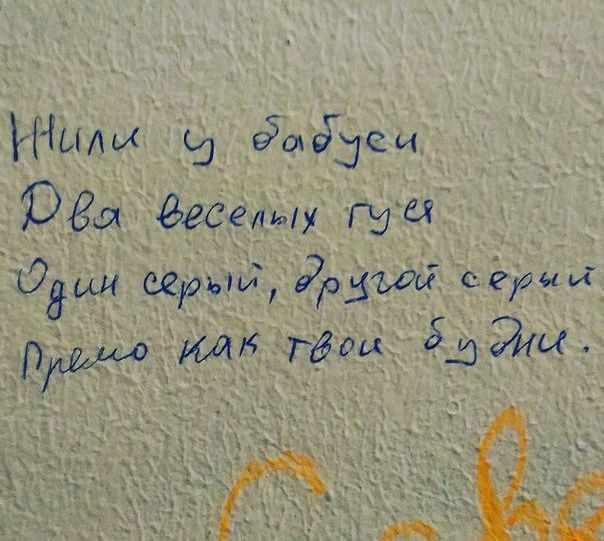 Жили у бабуси
Два веселых гуся
Один серый, другой серый
Премо как твои будни.